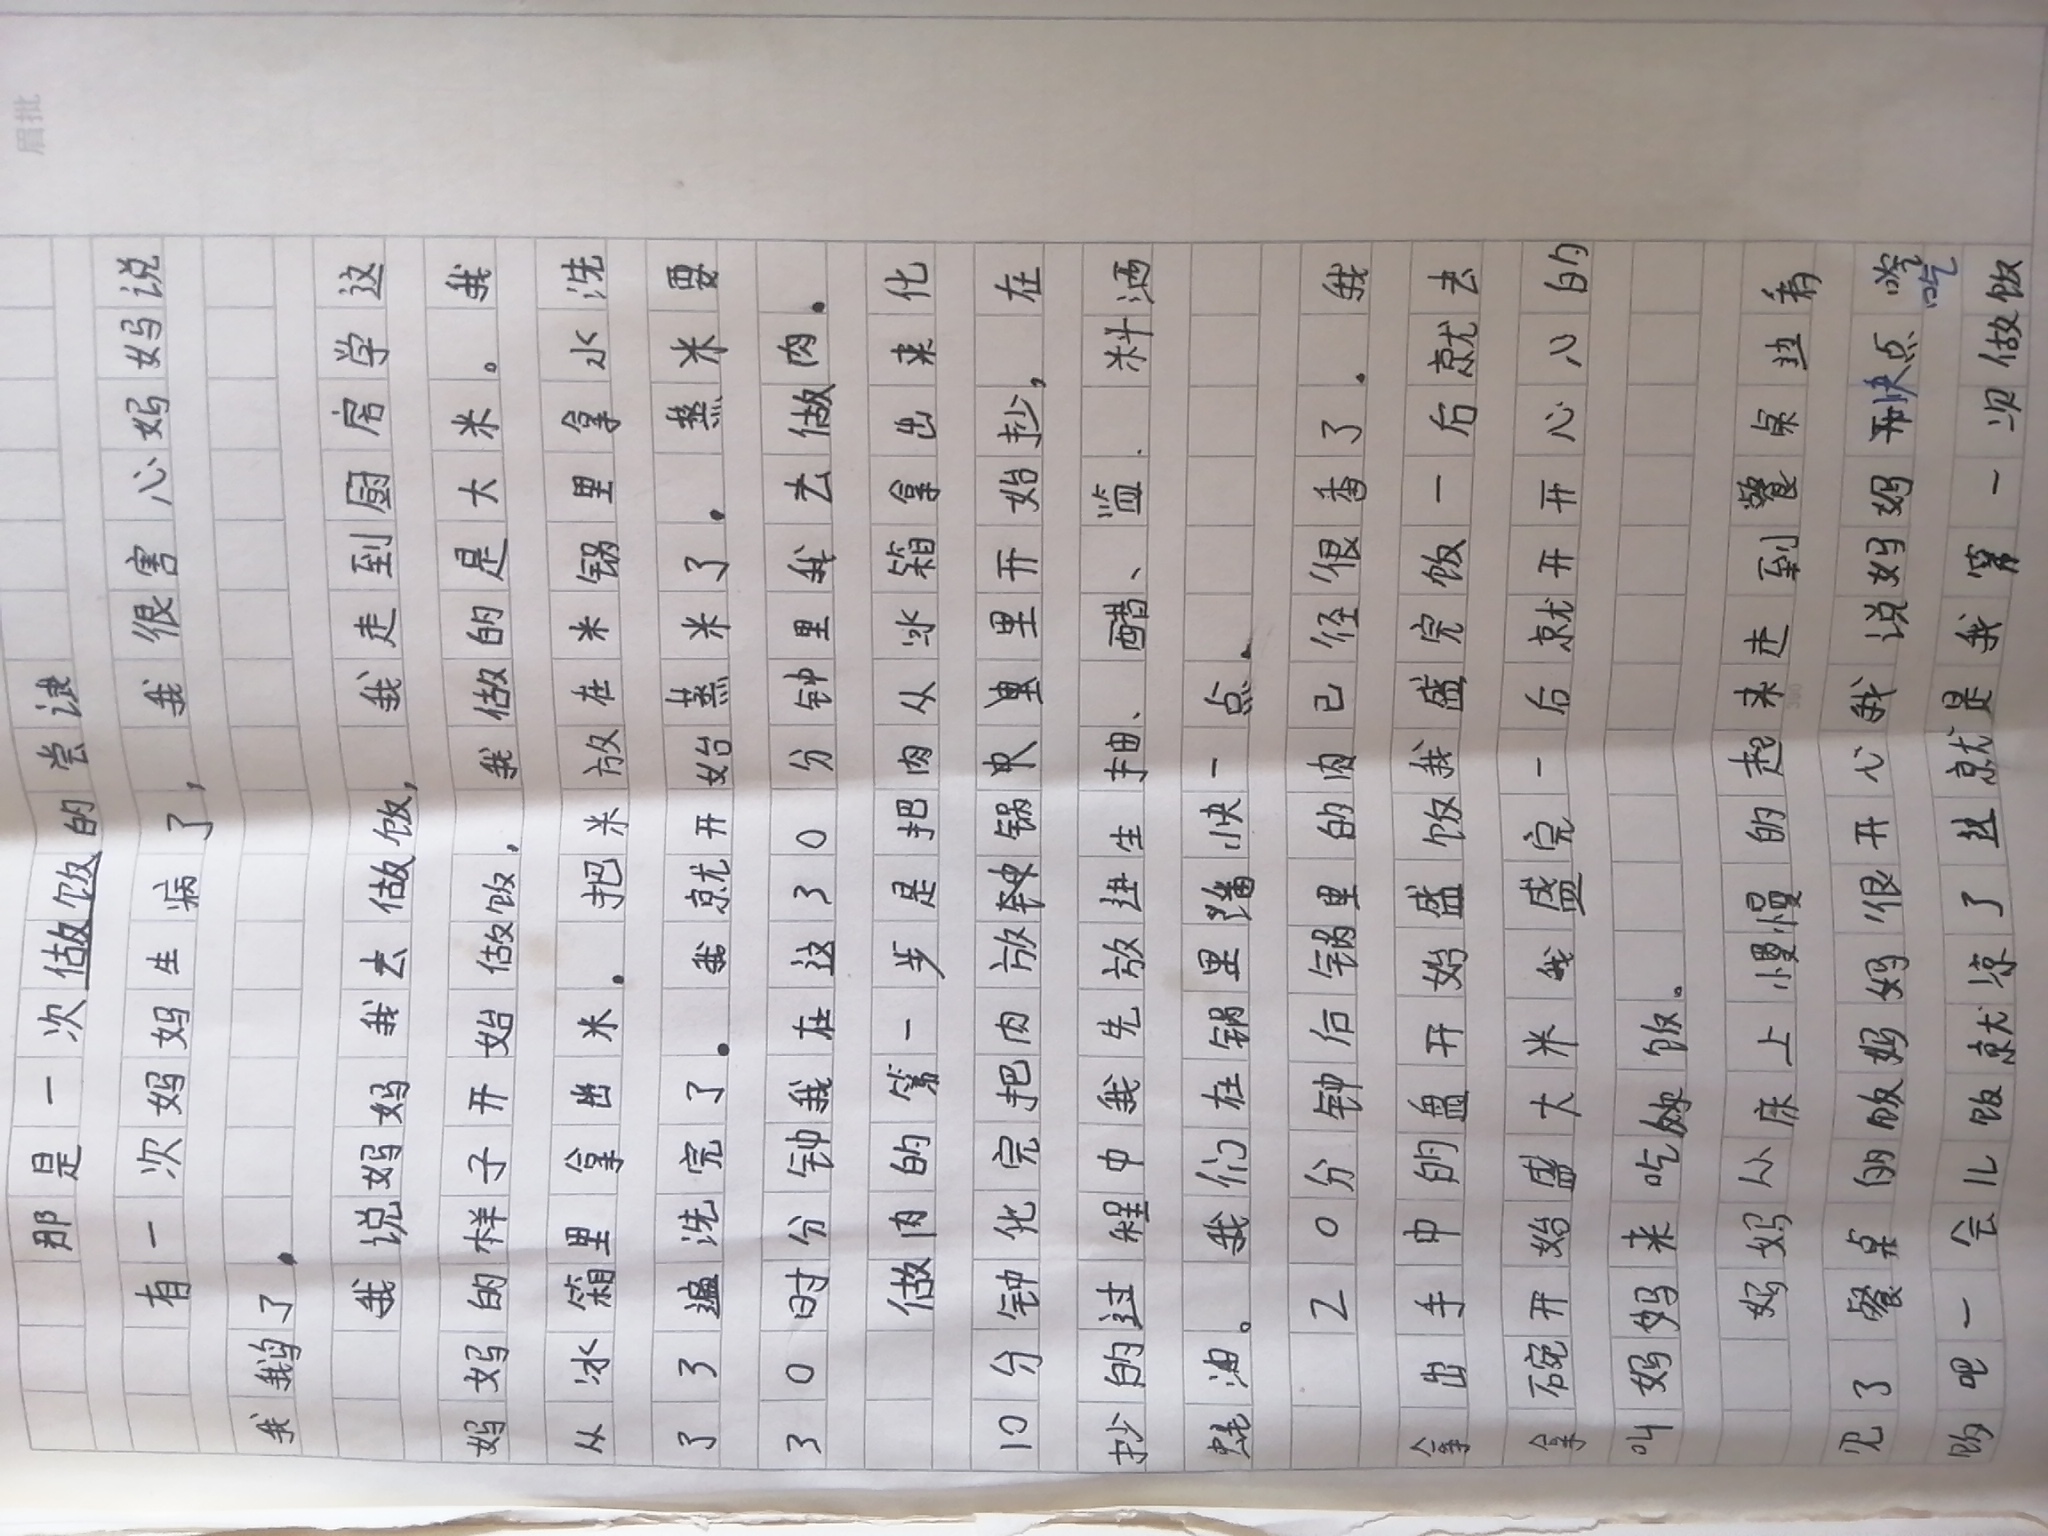 那是一次做饭的尝试
有一次妈妈生病了，我很害心妈妈说
我我了。
我说妈妈我去做饭，我走到厨房学这
妈妈的样子开始做饭，我做的是大米。我
从冰箱里拿出米。把米放在米锅里拿水洗
了3遍洗完了。我就开始蒸米了。蒸米要
30时分钟我在这30分钟里我去做肉。
做肉的第一步是把肉从冰箱拿出来化
10分钟化完把肉放锅里开始抄，在
抄的过程中我先放生抽、醋、监．料酒
蚝油。我们在锅里小快一点．
20分钟后锅里的肉已径很香了．我
拿出手中的盘开始盛饭我盛完饭一后就去
拿碗开始盛大米我盛完一后就开开心心的
叫妈妈来吃饭。
妈妈从床上慢慢的起来走到餐桌看
见了餐桌的饭妈妈很开心我说妈妈快点吃
吧一会儿饭就凉了就是我第一次做饭
眉批